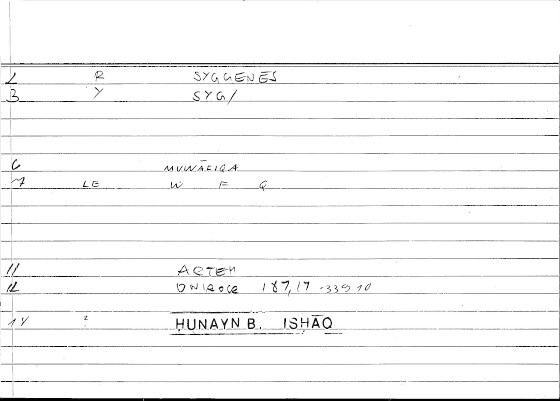 2 R SYGGENES
3 Y SYG/
6 MUWĀFIQA
7 LE W F Q
11 ARTEM
12 ONIROCR 187,17 -339 10
14 ? ḤUNAYN B. ISḤĀQ